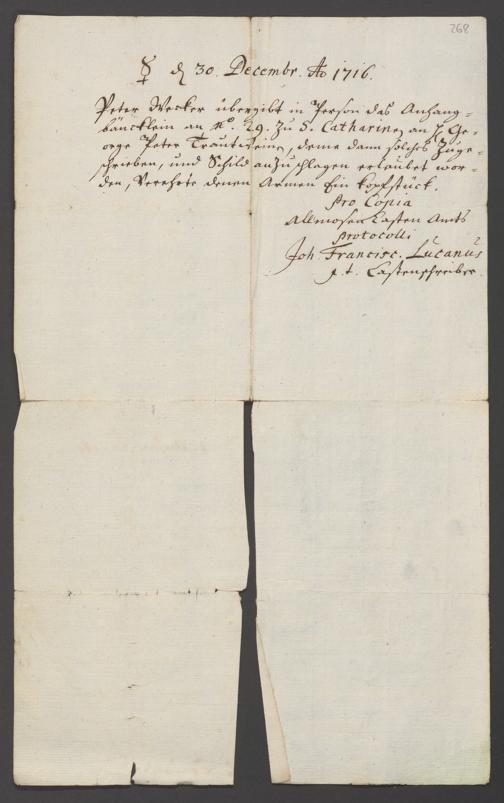 268
☿ d 30. Decembr. Ao 1716.
Peter Wecker übergibt in Person das Anhang-
bäncklein an No. 29. zu S. Catharinen an H. Ge-
orge Peter Trautwein, deme dann solches zuge-
schrieben, und Schild anzuschlagen erlaubet wor-
den, verehrte denen Armen Ein Kopfstuck.
pro Copia
Allmosen Casten Amts
Protocolli
Joh. Francisc. Lucanus
p. t. Castenschreiber.